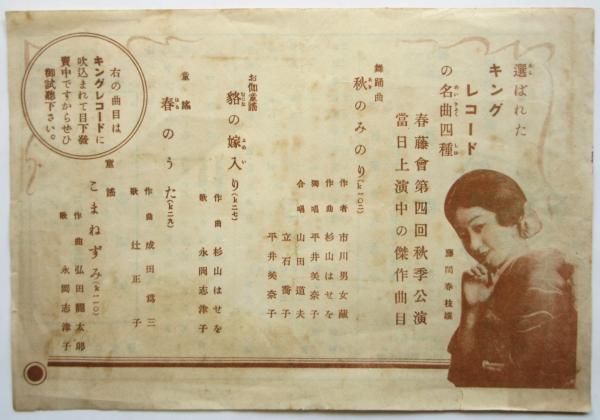 選ばれた
キング
レコード
の名曲四種
春藤會第四回秋季公演
當日上演中の傑作曲目
藤間春枝孃
舞踊曲
秋のみのり(K一〇二)
作者 市川男女蔵
作曲 杉山はせを
獨唱 平井美奈子
合唱 山田道夫
立石喬子
平井美奈子
お伽童謡
貉の嫁入り(K二七)
作曲 杉山はせを
歌 永岡志津子
童謡
春のうた(K二九)
作曲 成田爲三
歌 辻正子
童謡
こまねずみ(K一一〇)
作曲 弘田龍太郎
歌 永岡志津子
右の曲目は
キングレコードに
吹込まれて目下發
賣中ですからぜひ
御試聽下さい。